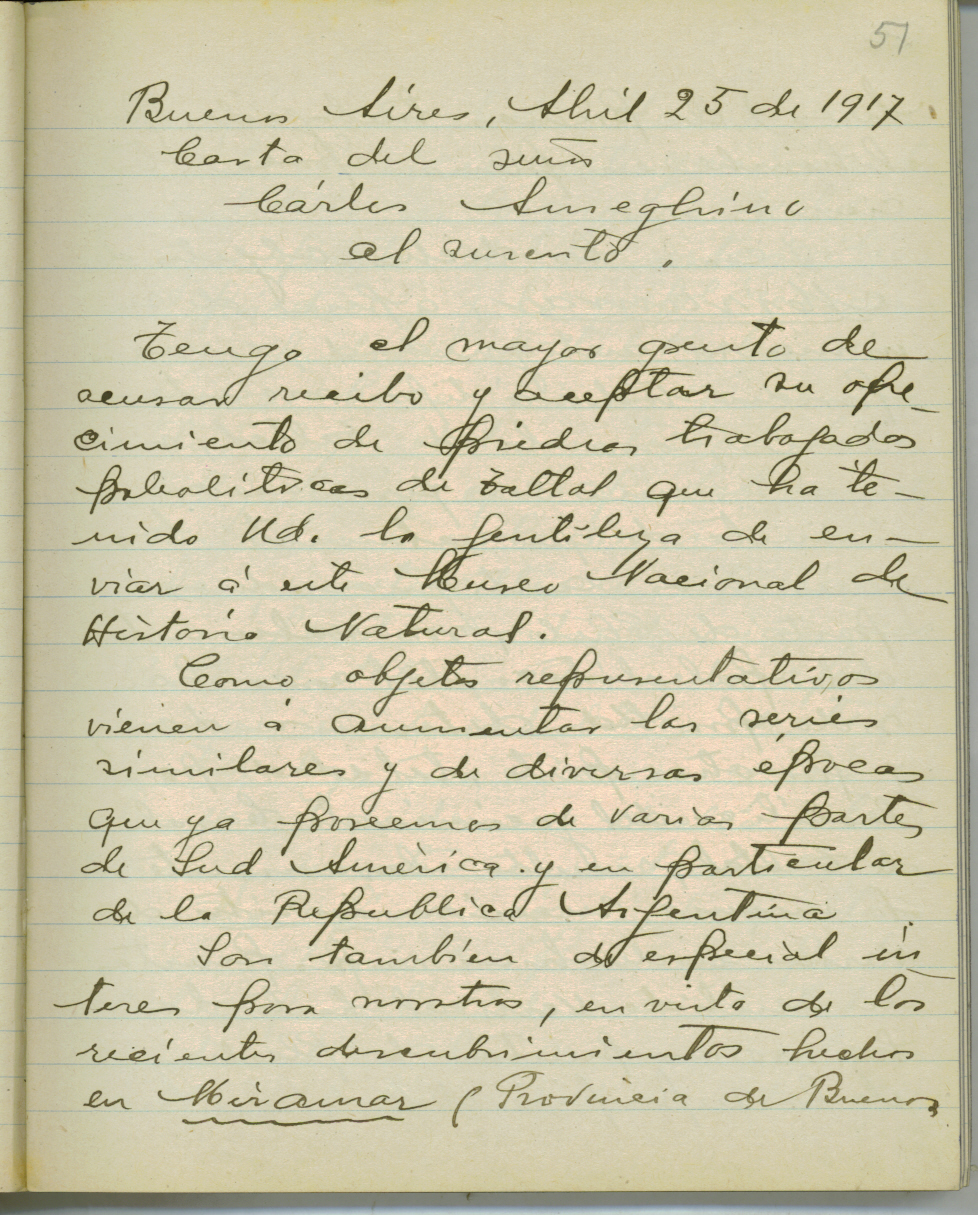 51
Buenos Aires, Abril 25 de 1917
Carta del señor
Cárlos Ameghino
al suscrito.
Tengo el mayor gusto de
acusar recibo y aceptar su ofre-
cimiento de piedras trabajadas
paleoliticas de Taltal que ha te-
nido Ud. la gentileza de en-
viar á este Museo Nacional de
Historia Natural.
Como objetos representativos
vienen á aumentar las series
similares y de diversas épocas
que ya poseemos de varias partes
de Sud América y en particular
de la Republica Argentina
Son tambíen de especial in
teres para nosotros, en vista de los
recientes descubrimientos hechos
en Miramar (Provincia de Buenos